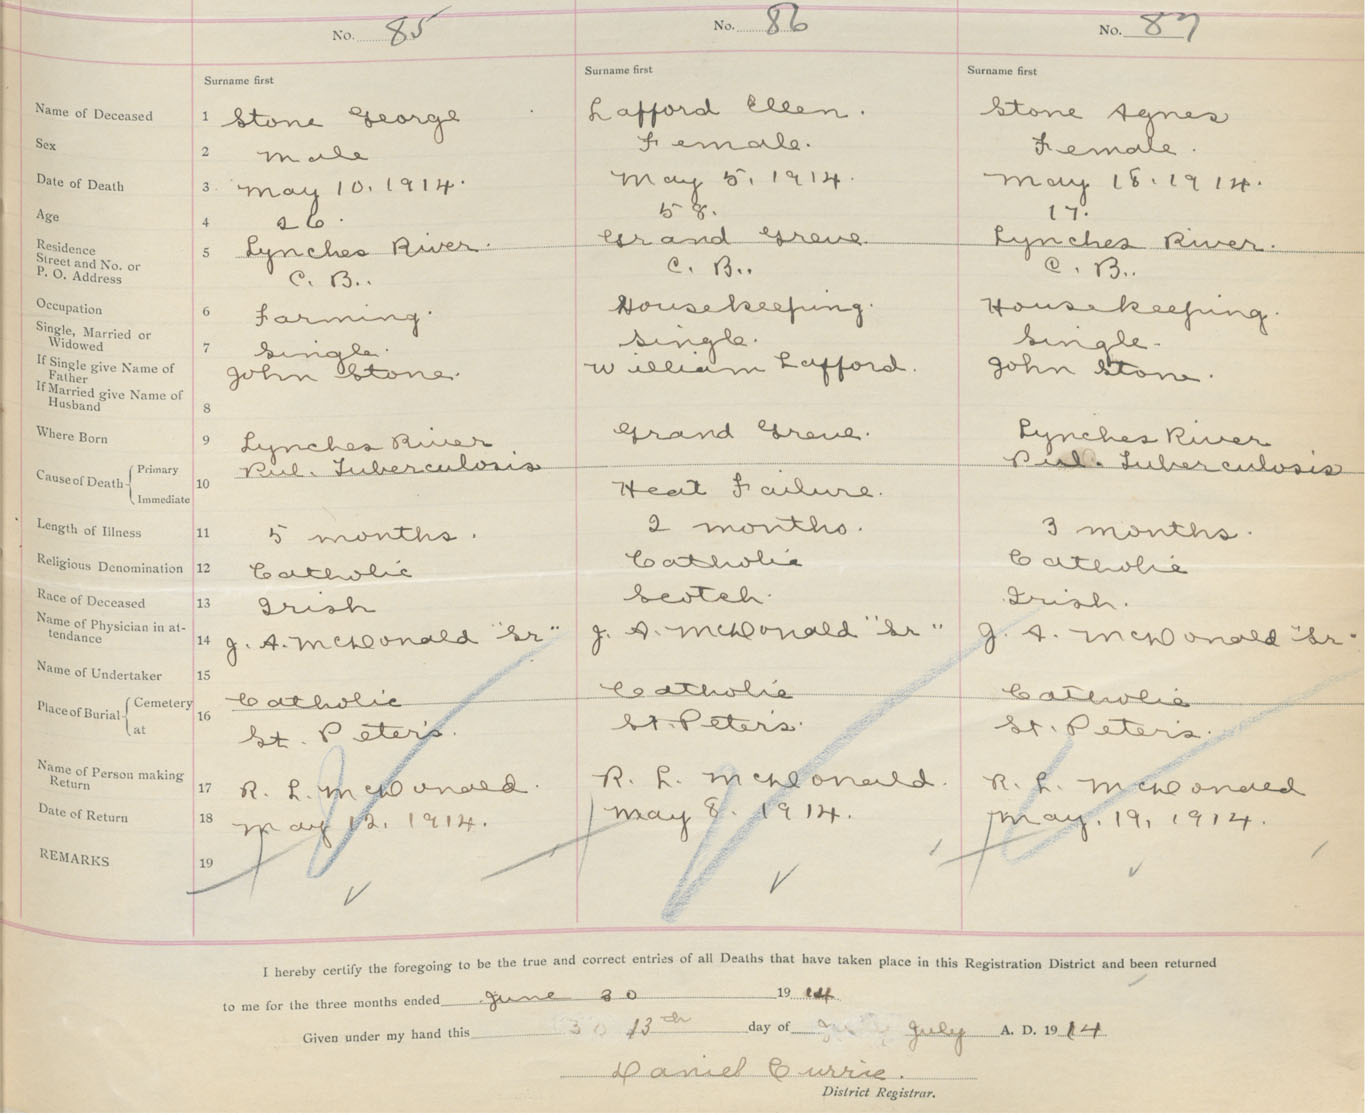 No. 85 No. 86 No. 87
Surname first Surname first Surname first
Name of Deceased 1 Stone George Lafford Ellen. Stone Agnes
Sex 2 Male Female. Female.
Date of Death 3 May 10. 1914. May 5. 1914. May 18. 1914.
Age 4 26. 58. 17.
Residence
Street and No. or 5 Lynches River. Grand Greve. Lynches River.
P. O. Address C. B.. C. B.. C. B..
Occupation 6 Farming. Housekeeping. Housekeeping.
Single, Married or
Widowed 7 Single. Single. Single.
If Single give Name of
Father John Stone. William Lafford. John Stone.
If Married give Name of
Husband 8
Where Born 9 Lynches River Grand Greve. Lynches River
Cause of Death Primary Pul. Tuberculosis Pul. Tuberculosis
Immediate 10 Heat Failure.
Length of Illness 11 5 months. 2 months. 3 months.
Religious Denomination 12 Catholic Catholic Catholic
Race of Deceased 13 Irish Scotch. Irish.
Name of Physician in at-
tendance 14 J. A. McDonald "Sr" J. A. McDonald "Sr" J. A. McDonald "Sr"
Name of Undertaker 15
Place of Burial Cemetery 16 Catholic Catholic Catholic
at St. Peter's. St. Peter's. St. Peter's.
Name of Person making
Return 17 R. L. McDonald. R. L. McDonald. R. L. McDonald
Date of Return 18 May 12, 1914. May 8. 1914. May. 19, 1914.
REMARKS 19
I hereby certify the foregoing to be the true and correct entries of all Deaths that have taken place in this Registration District and been returned
to me for the three months ended June 30 19 14
Given under my hand this 13th day of July A. D. 19 14
Daniel Currie.
District Registrar.